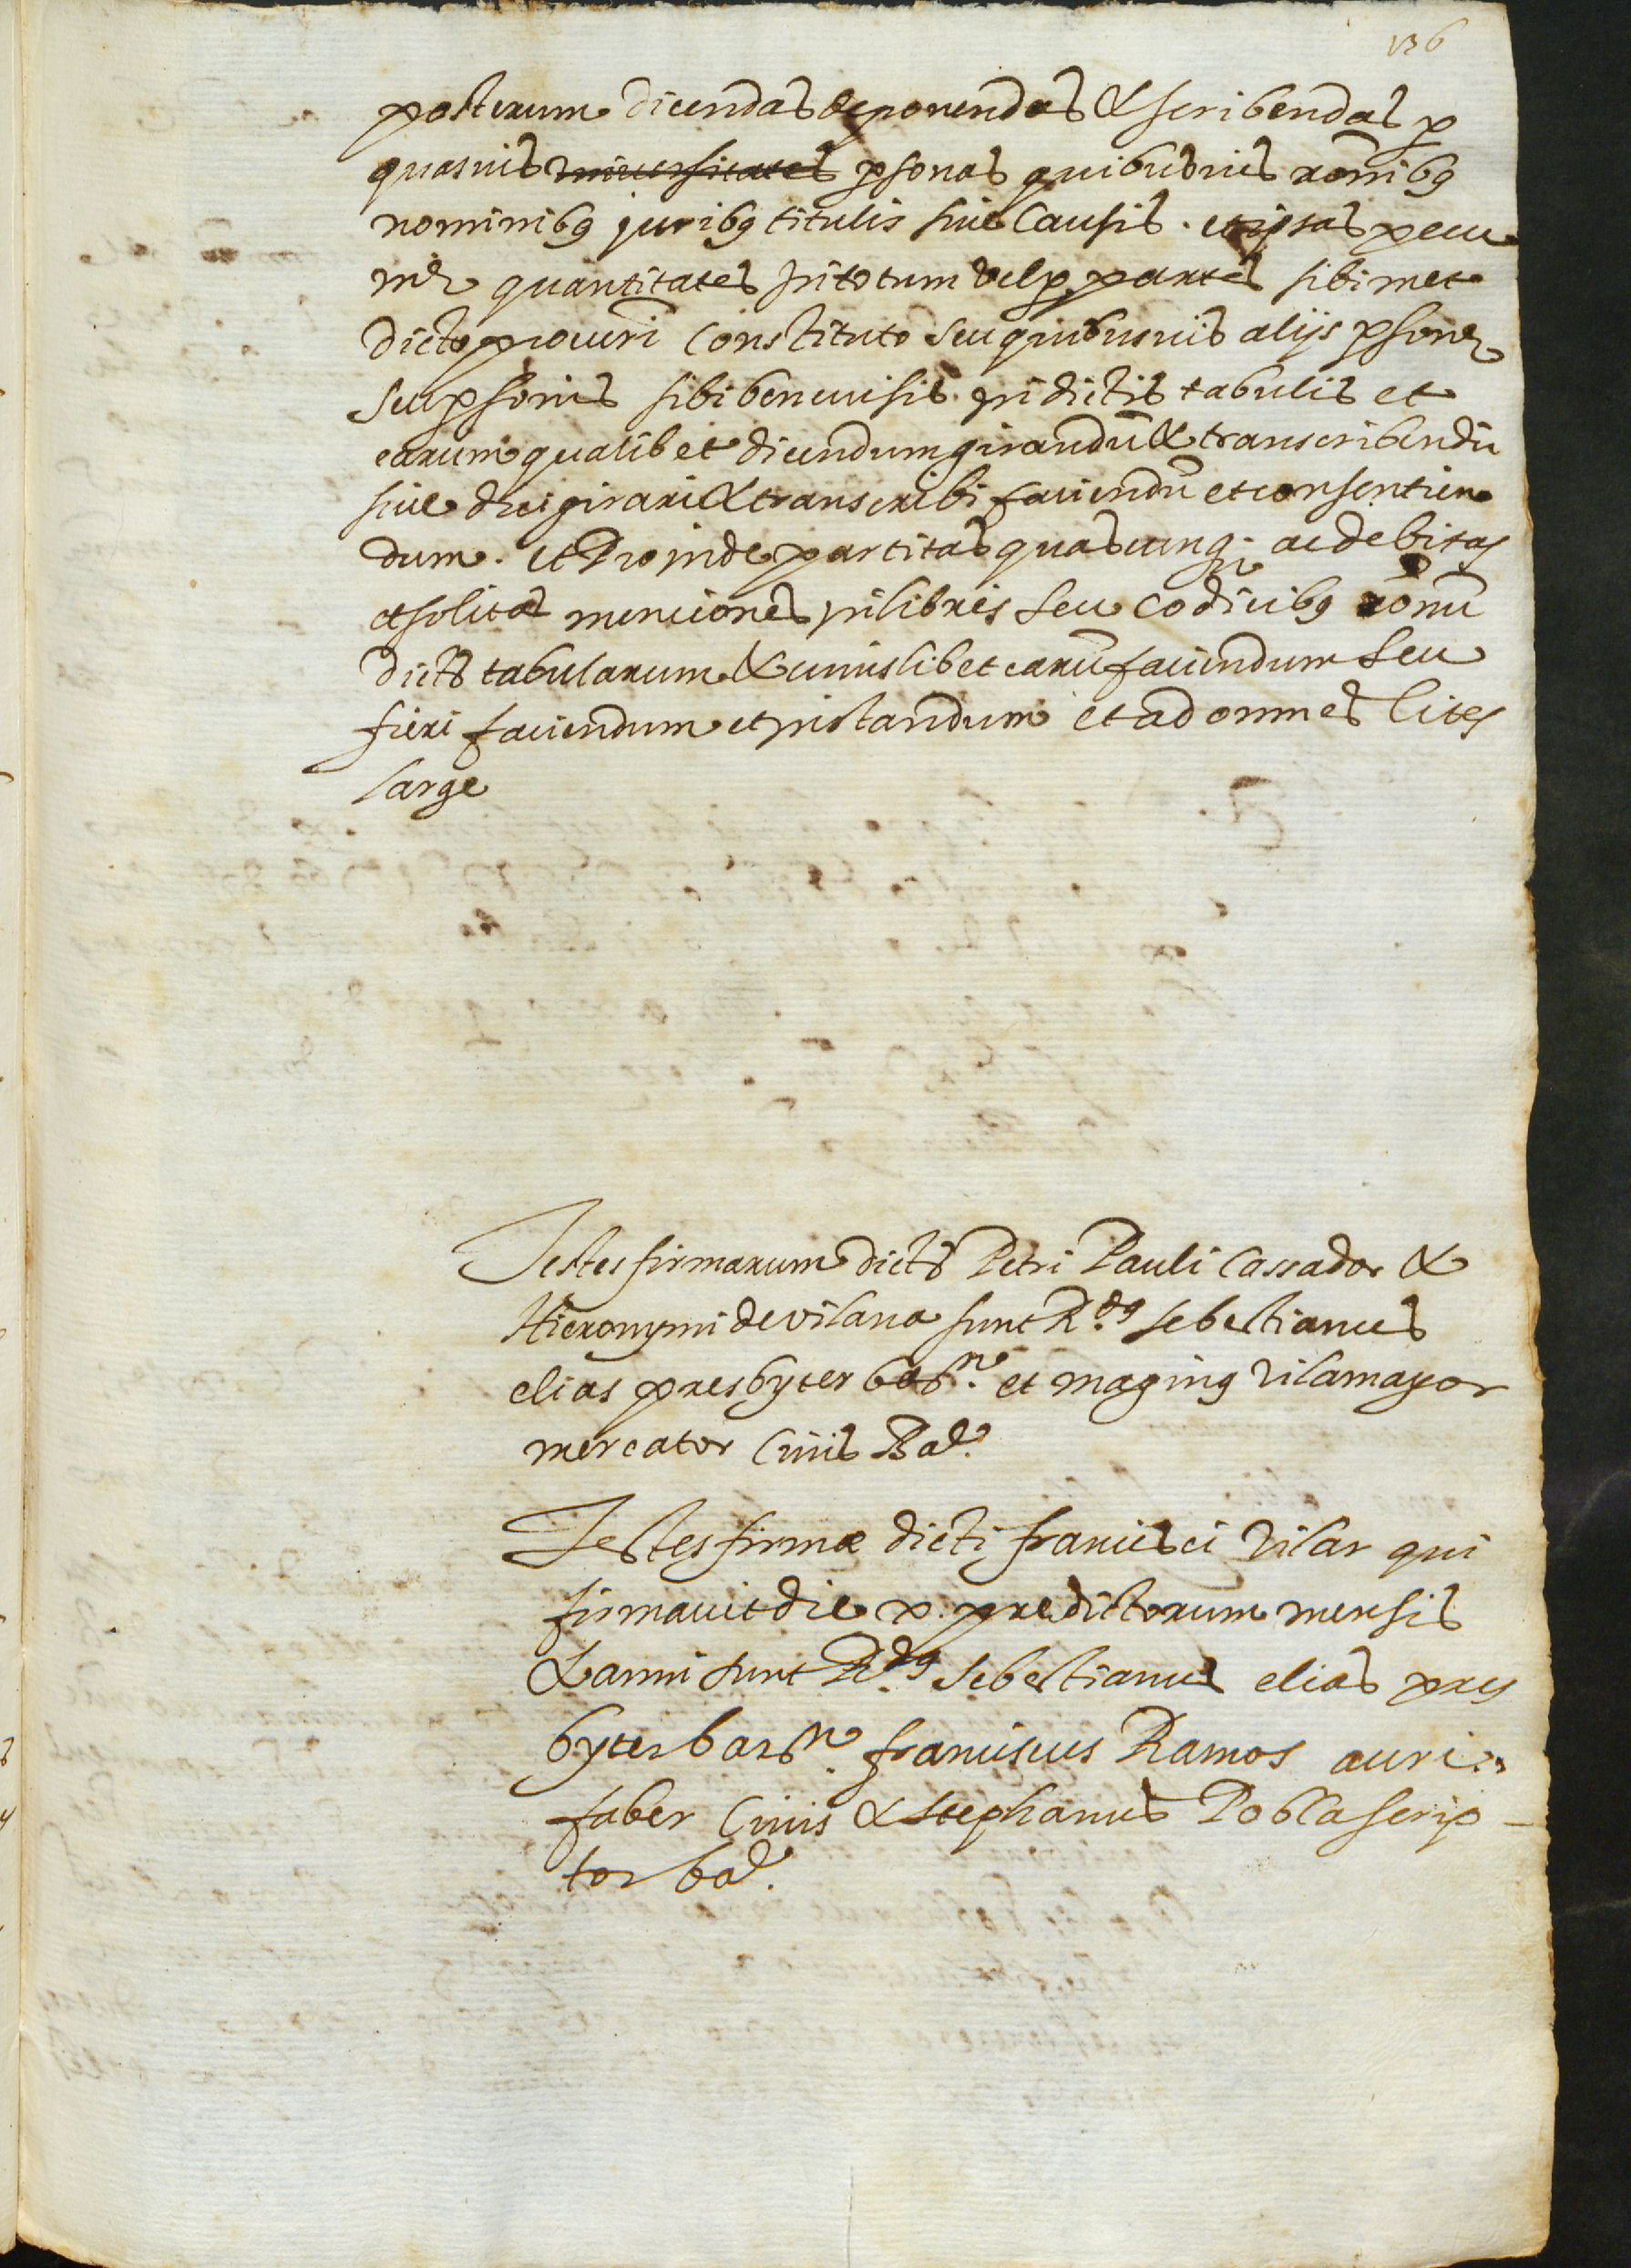 136
posterum dicendas deponendas & scribendas p
quasuis uniuersitates psonas quibusuis rõnibq
nominibq juribq titulis siue causis. et ipsas pecu
nie quantitates in totum vel p partes sibimet
dicto procuri constituto seu quibusuis alijs psone
seu psonis sibi benevisis in dictis tabulis et
earum qualibet dicendum girandũ & transcribendũ
siue dici girari & transcribi faciendũ et consentien
dum. et Proinde partitas quascunq ac debitas
et solitas menciones in libris seu codicibq rõnũ
dictã tabularum & cuiuslibet earũ faciendum seu
fieri faciendum et instandum et ad omnes lites
large
Testes firmarum dictõ Petri Pauli Cassador &
Hieronymi de vilana sunt R.dq sebestianus
elias presbyter barne. et maginq vilamajor
mercator Ciuis Bae.
Testes firmæ dicti francisci vilar qui
firmauit die x. predictorum mensis
& anni sunt R.dq sebestianus elias pres
byter barne. franciscus Ramos auri
faber Ciuis & stephanus Pobla scrip
tor bae.